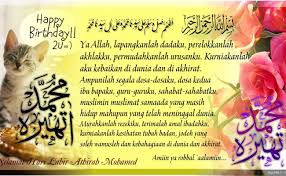 Happy
Birthday!!
بسم الله الرحمن الرحيم
Ya Allah, lapangkanlah dadaku, perelokkanlah
akhlakku, permudahkanlah urusanku. Kurniakanlah
aku kebaikan di dunia dan di akhirat.
Ampunilah segala dosa-dosa, dosa kedua
ibu bapaku, guru-guru, sahabat-sahabatku,
muslimin muslimat samaada yang masih
hidup mahupun yang telah meninggal dunia.
Murahkanlah rezekiku, terimalah amal ibadatku,
kurniakanlah kesihatan tubuh badan, jodoh yang
soleh dan kebahagiaan di dunia dan akhirat.
Amiin ya robbal 'aalamiin....
محمد
اتهيره
محمد
اتهيره
Selamat Hari Lahir Athirah Mohamed